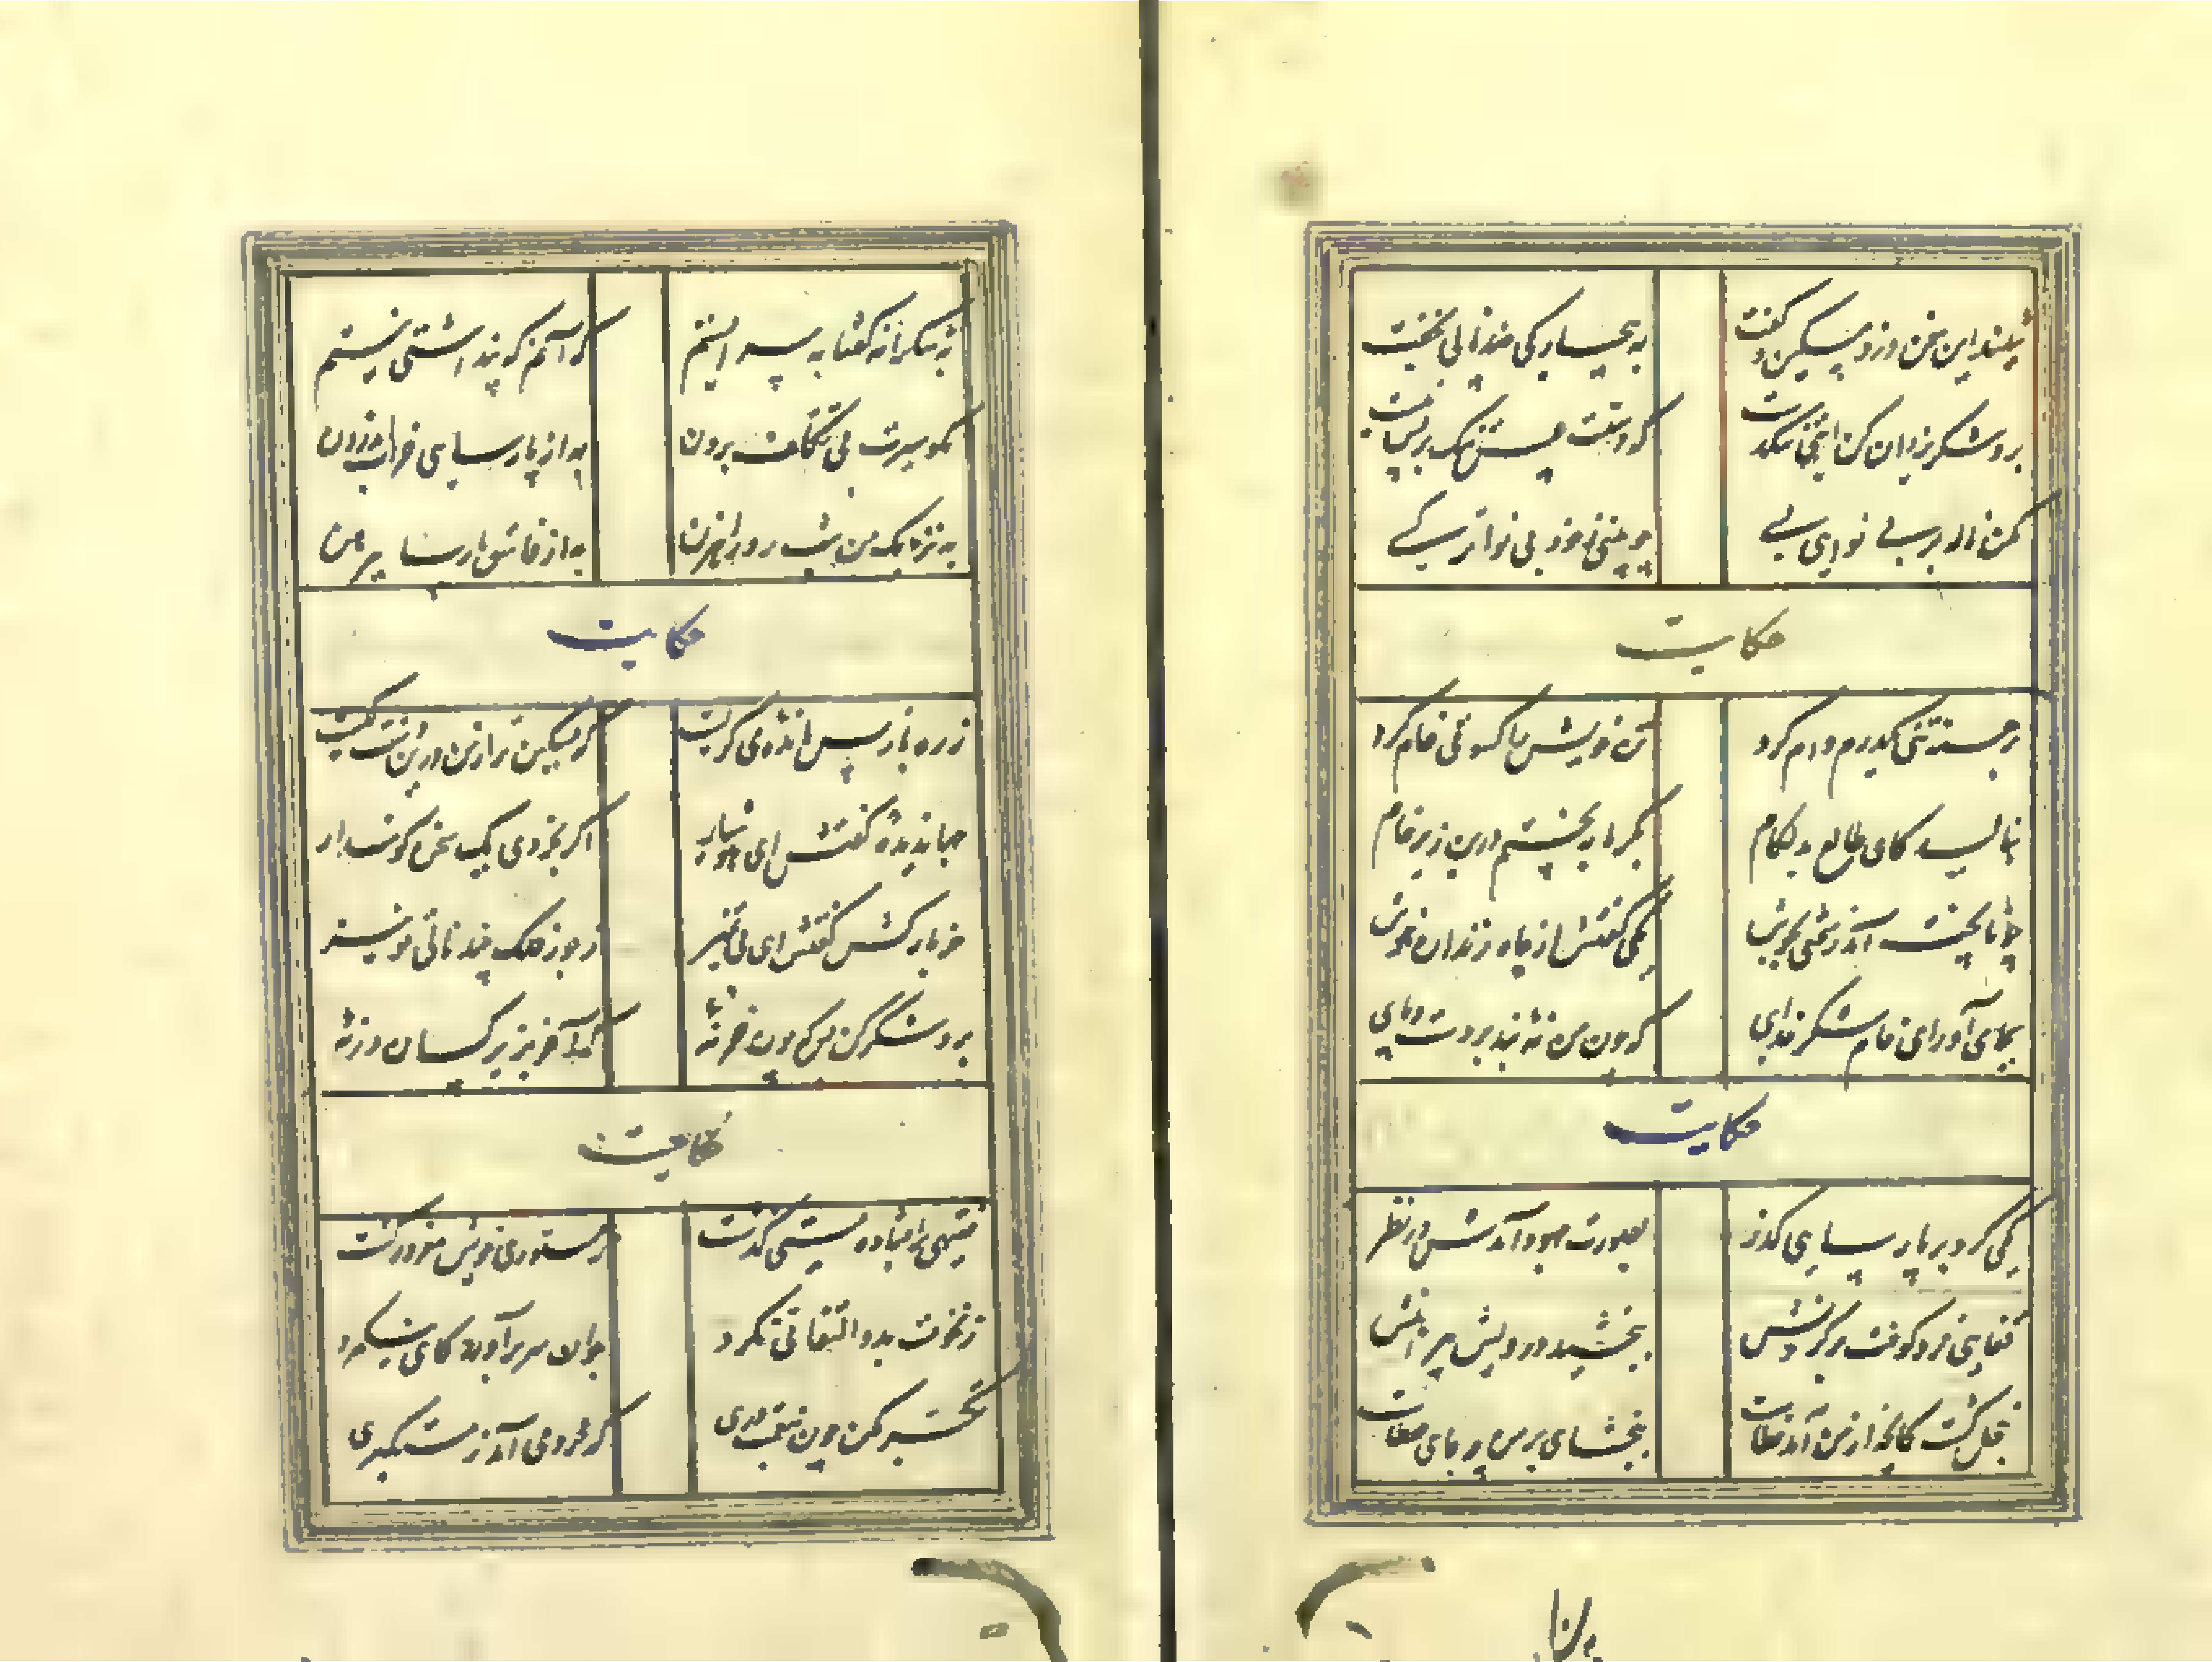 شنید این سخن دزد مسکین و گفت
به بیچارگی چند نالی بخفت
برو شکر یزدان کن ای تنگدست
که دستت عسس تنگ بر هم نبست
مکن ناله از بی نوایی بسی
چو بینی ز خود بی نواتر کسی
حکایت
برهنه تنی یکدرم وام کرد
تن خویش را کسوتی خام کرد
بنالید کای طالع بدلگام
بگرما بپختم درین زیر خام
چو ناپخته آمد ز سختی بجوش
یکی گفتش از چاه زندان خموش
بجای آور ای خام شکر خدای
که چون من نه بند بر دست و پای
حکایت
یکی کرد بر پارسایی گذر
بصورت جهود آمدش در نظر
قفایی فرو کوفت بر گردنش
ببخشید درویش پیراهنش
خجل گشت کانچه از من آمد خطاست
ببخشای بر من چه جای عطاست
بشکرانه گفتا بسر ایستم
که آنم که پنداشتی نیستم
نکو سیرت بی تکلف برون
به از پارسای خراب اندرون
به نزدیک من شب رو راهزن
به از فاسق پارسا پیرهن
حکایت
ز ره باز پس مانده ی گریست
که مسکین تر از من درین دشت کیست
جهاندیده گفتش ای هوشیار
اگر بخردی یک سخن گوش دار
خر بارکش گفتش ای بی تمیز
ز جور فلک چند نالی تو نیز
برو شکر کن که چون خر نه
که آخر بزیر کسان در نه
حکایت
فقیهی بر افتاده مستی گذشت
بمستوری خویش مغرور گشت
ز نخوت بدو التفاتی نکرد
جوان سر برآورد کای نیکمرد
تکبر مکن چون بنعمت دری
که محرومی آید ز مستکبری